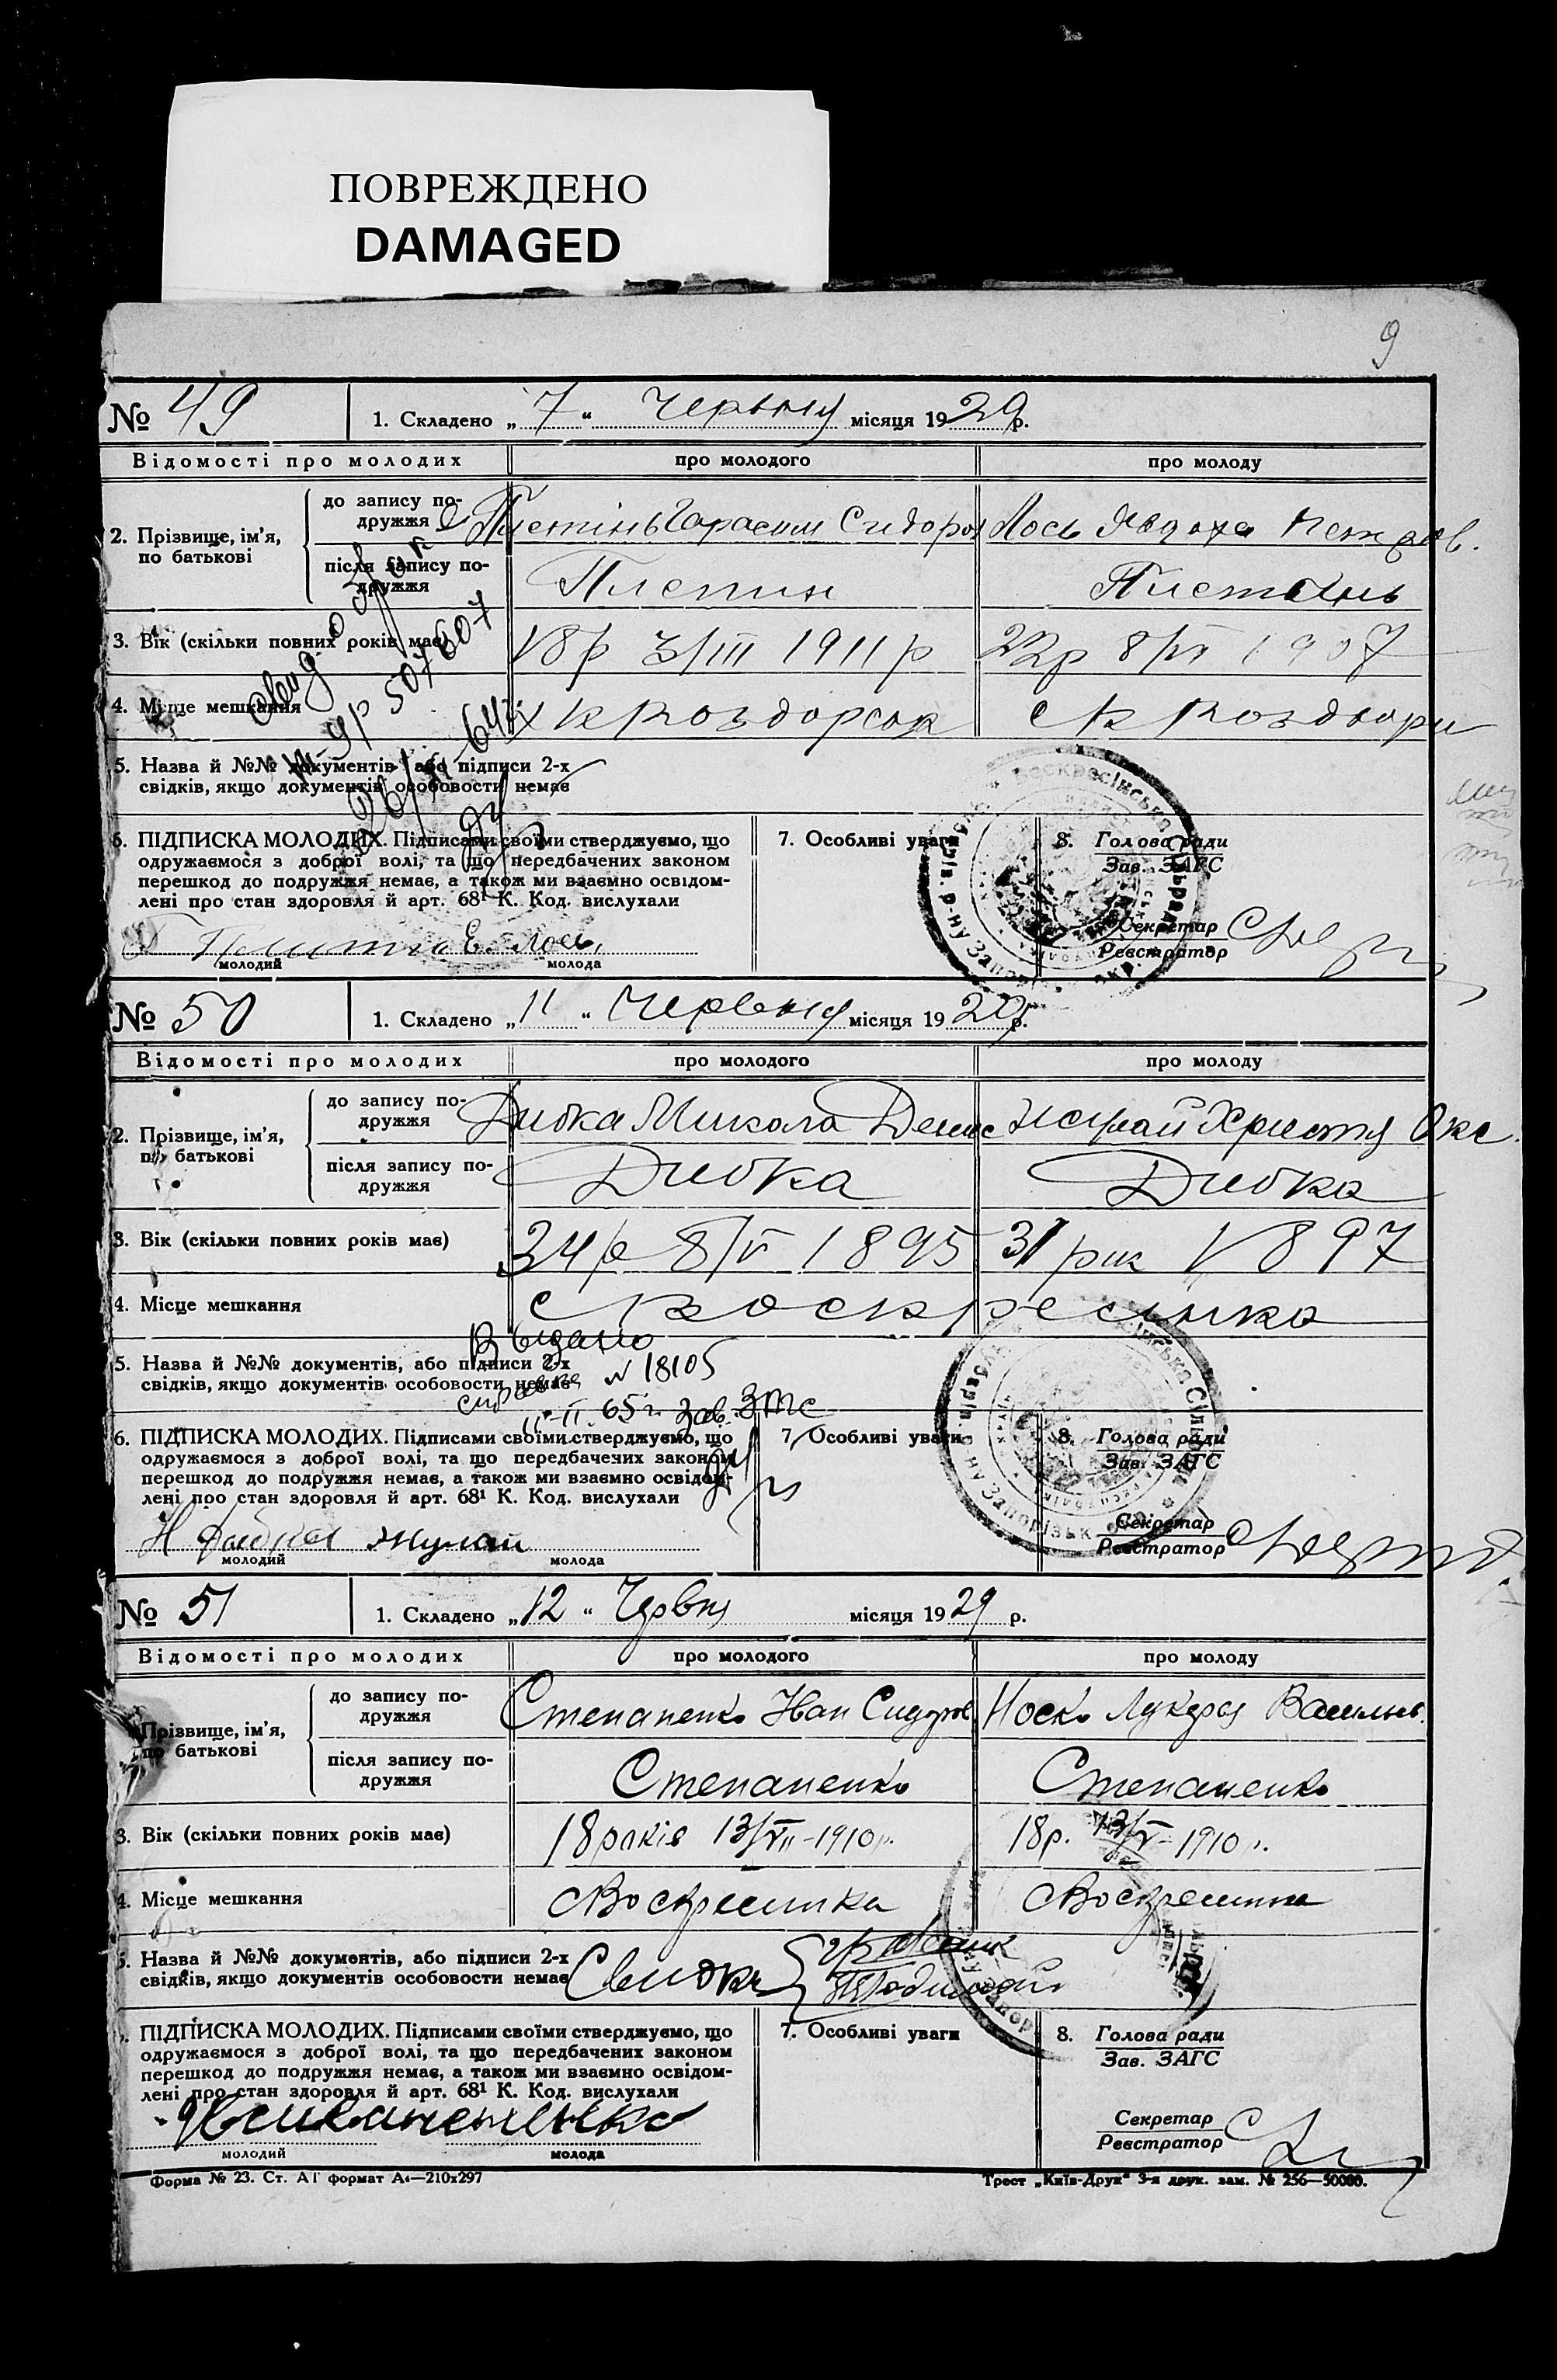 ПОВРЕЖДЕНО
DAMAGED
9
№ 49 1. Складено „7“ Червня місяця 1929 р.
Відомості про молодих про молодого про молоду
2. Прізвище, ім’я, по батькові
до запису по-
дружжя Гарасим Сидоров Лось Явдоха Петров.
після запису по-
дружжя
3. Вік (скільки повних років має) 18 р 3/III 1911 р 22 р 8/VI 1907
4. Місце мешкання
5. Назва й №№ документів або підписи 2-х
свідків, якщо документів особовости немає
6. ПІДПИСКА МОЛОДИХ. Підписами своїми стверджуємо, що
одружаємося з доброї волі, та що передбачених законом
перешкод до подружжя немає, а також ми взаємно освідом-
лені про стан здоровля й арт. 68¹ К. Код. вислухали
Е. Лось
молодий молода
7. Особливі уваги
8. Голова ради
Зав. ЗАГС
Секретар
Реєстратор
№ 50 1. Складено „11“ Червня місяця 1929 р.
Відомості про молодих про молодого про молоду
2. Прізвище, ім’я, по батькові
до запису по-
дружжя Дибка Микола Денис Христя
після запису по-
дружжя Дибка Дибка
3. Вік (скільки повних років має) 34 р 8/V 1895 31 рік 1897
4. Місце мешкання с Воскресинка
Видано
5. Назва й №№ документів, або підписи 2-х
свідків, якщо документів особовости немає
справка № 18105
11-II-65 г. Зав. Загс
6. ПІДПИСКА МОЛОДИХ. Підписами своїми стверджуємо, що
одружаємося з доброї волі, та що передбачених законом
перешкод до подружжя немає, а також ми взаємно освідом-
лені про стан здоровля й арт. 68¹ К. Код. вислухали
молодий молода
7. Особливі уваги
8. Голова ради
Зав. ЗАГС
Секретар
Реєстратор
№ 51 1. Складено „12“ Червня місяця 1929 р.
Відомості про молодих про молодого про молоду
Прізвище, ім’я, по батькові
до запису по-
дружжя Степаненко Іван Сидоров. Носко Лукеря Васильев.
після запису по-
дружжя Степаненко Степаненко
3. Вік (скільки повних років має) 18 років 13/VII-1910 р. 18 р. 13/V-1910 р.
4. Місце мешкання с Воскресинка с Воскресинка
5. Назва й №№ документів, або підписи 2-х
свідків, якщо документів особовости немає Свидки
ПІДПИСКА МОЛОДИХ. Підписами своїми стверджуємо, що
одружаємося з доброї волі, та що передбачених законом
перешкод до подружжя немає, а також ми взаємно освідом-
лені про стан здоровля й арт. 68¹ К. Код. вислухали
молодий молода
7. Особливі уваги
8. Голова ради
Зав. ЗАГС
Секретар
Реєстратор
Форма № 23. Ст. АІ формат А₄—210х297 Трест „Київ-Друк“ 3-я друк. зам. № 256—50000.